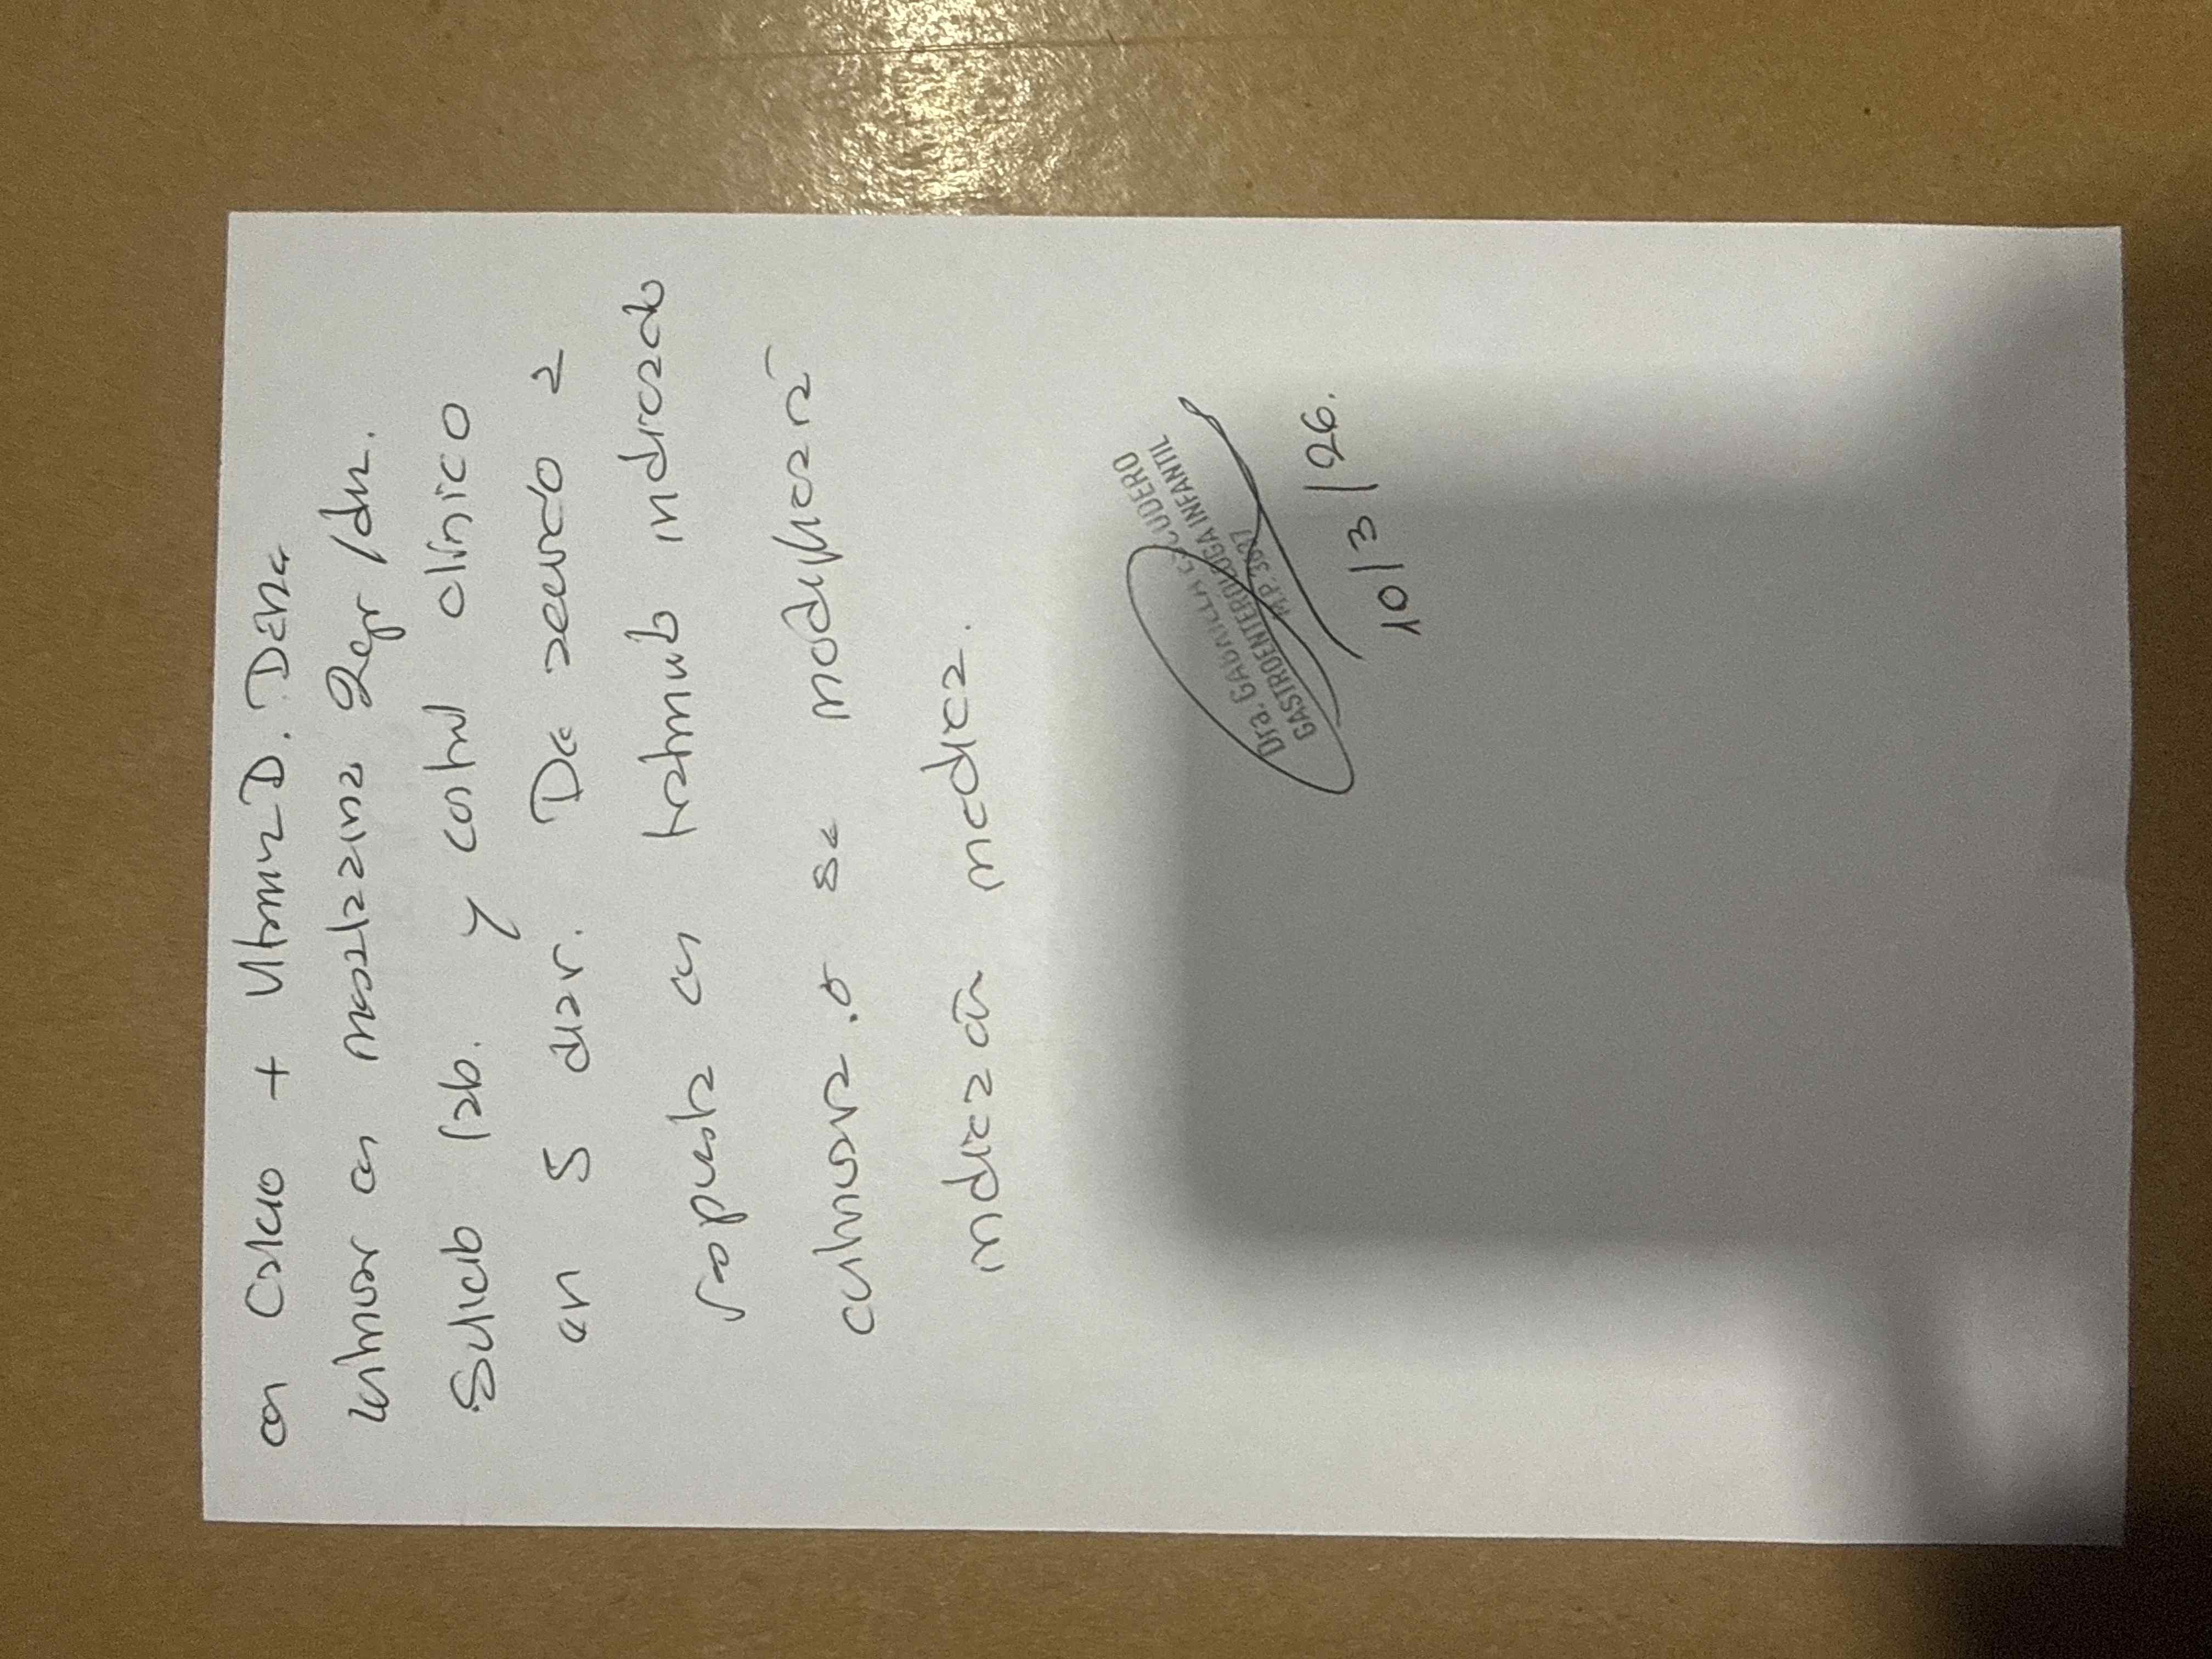 con Calcio + Vitamina D. Debe
continuar con mesalazina 2 gr/dia.
Solicito lab. y control clínico
en 5 dias. De acuerdo a
respuesta con tratamiento indicado
continuara o se modificará
indicación medica.
Dra. Gabriela ESCUDERO
GASTROENTEROLOGA INFANTIL
M.P.
10/3/26.